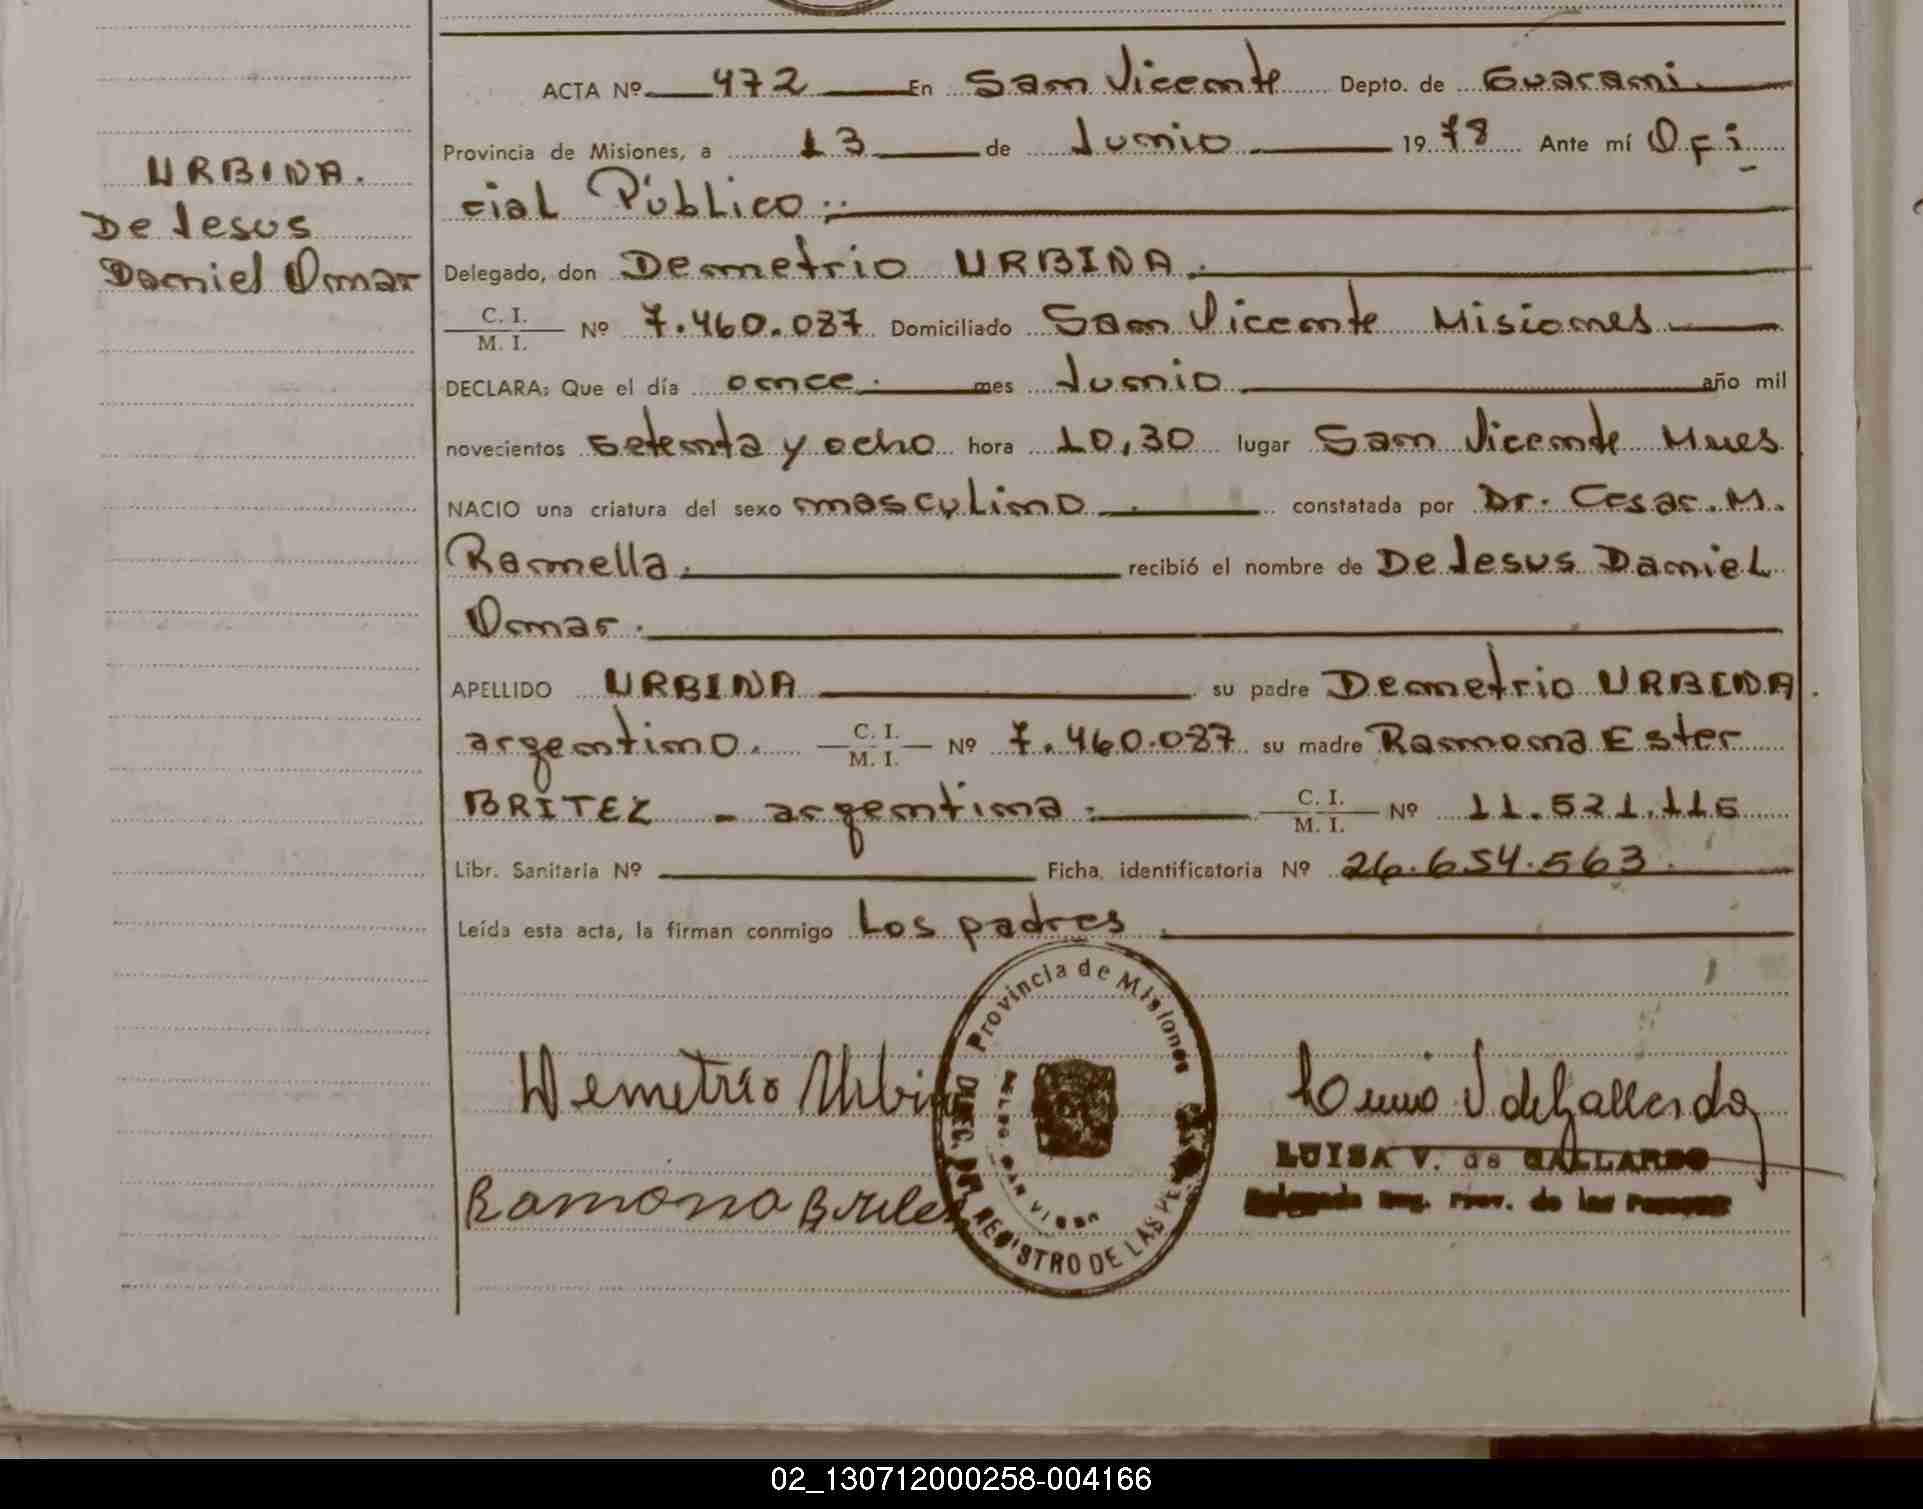 ACTA Nº 472 En San Vicente Depto. de Guarani
Provincia de Misiones, a 13 de Junio 1978 Ante mí Ofi
cial Público
Delegado, don Demetrio URBINA.
C. I.
M. I. Nº 7.460.087 Domiciliado San Vicente Misiones
DECLARA: Que el día once mes Junio año mil
novecientos setenta y ocho hora 10,30 lugar San Vicente Mnes
NACIO una criatura del sexo masculino constatada por Dr. Cesar. M.
Ramella. recibió el nombre de De Jesus Daniel
Omar.
APELLIDO URBINA su padre Demetrio URBINA
argentino. C. I.
M. I. Nº 7.460.087 su madre Ramona Ester
BRITEZ - argentina. C. I.
M. I. Nº 11.521.116
Libr. Sanitaria Nº Ficha identificatoria Nº 26.654.563.
Leída esta acta, la firman conmigo Los padres.
URBINA.
De Jesus
Daniel Omar
Demetrio Urbina
Ramona Britez
Provincia de Misiones
DIREC. DEL REGISTRO DE LAS PE
LUISA V. de GALLARDO
Delegada Reg. Prov. de las Personas
02_130712000258-004166